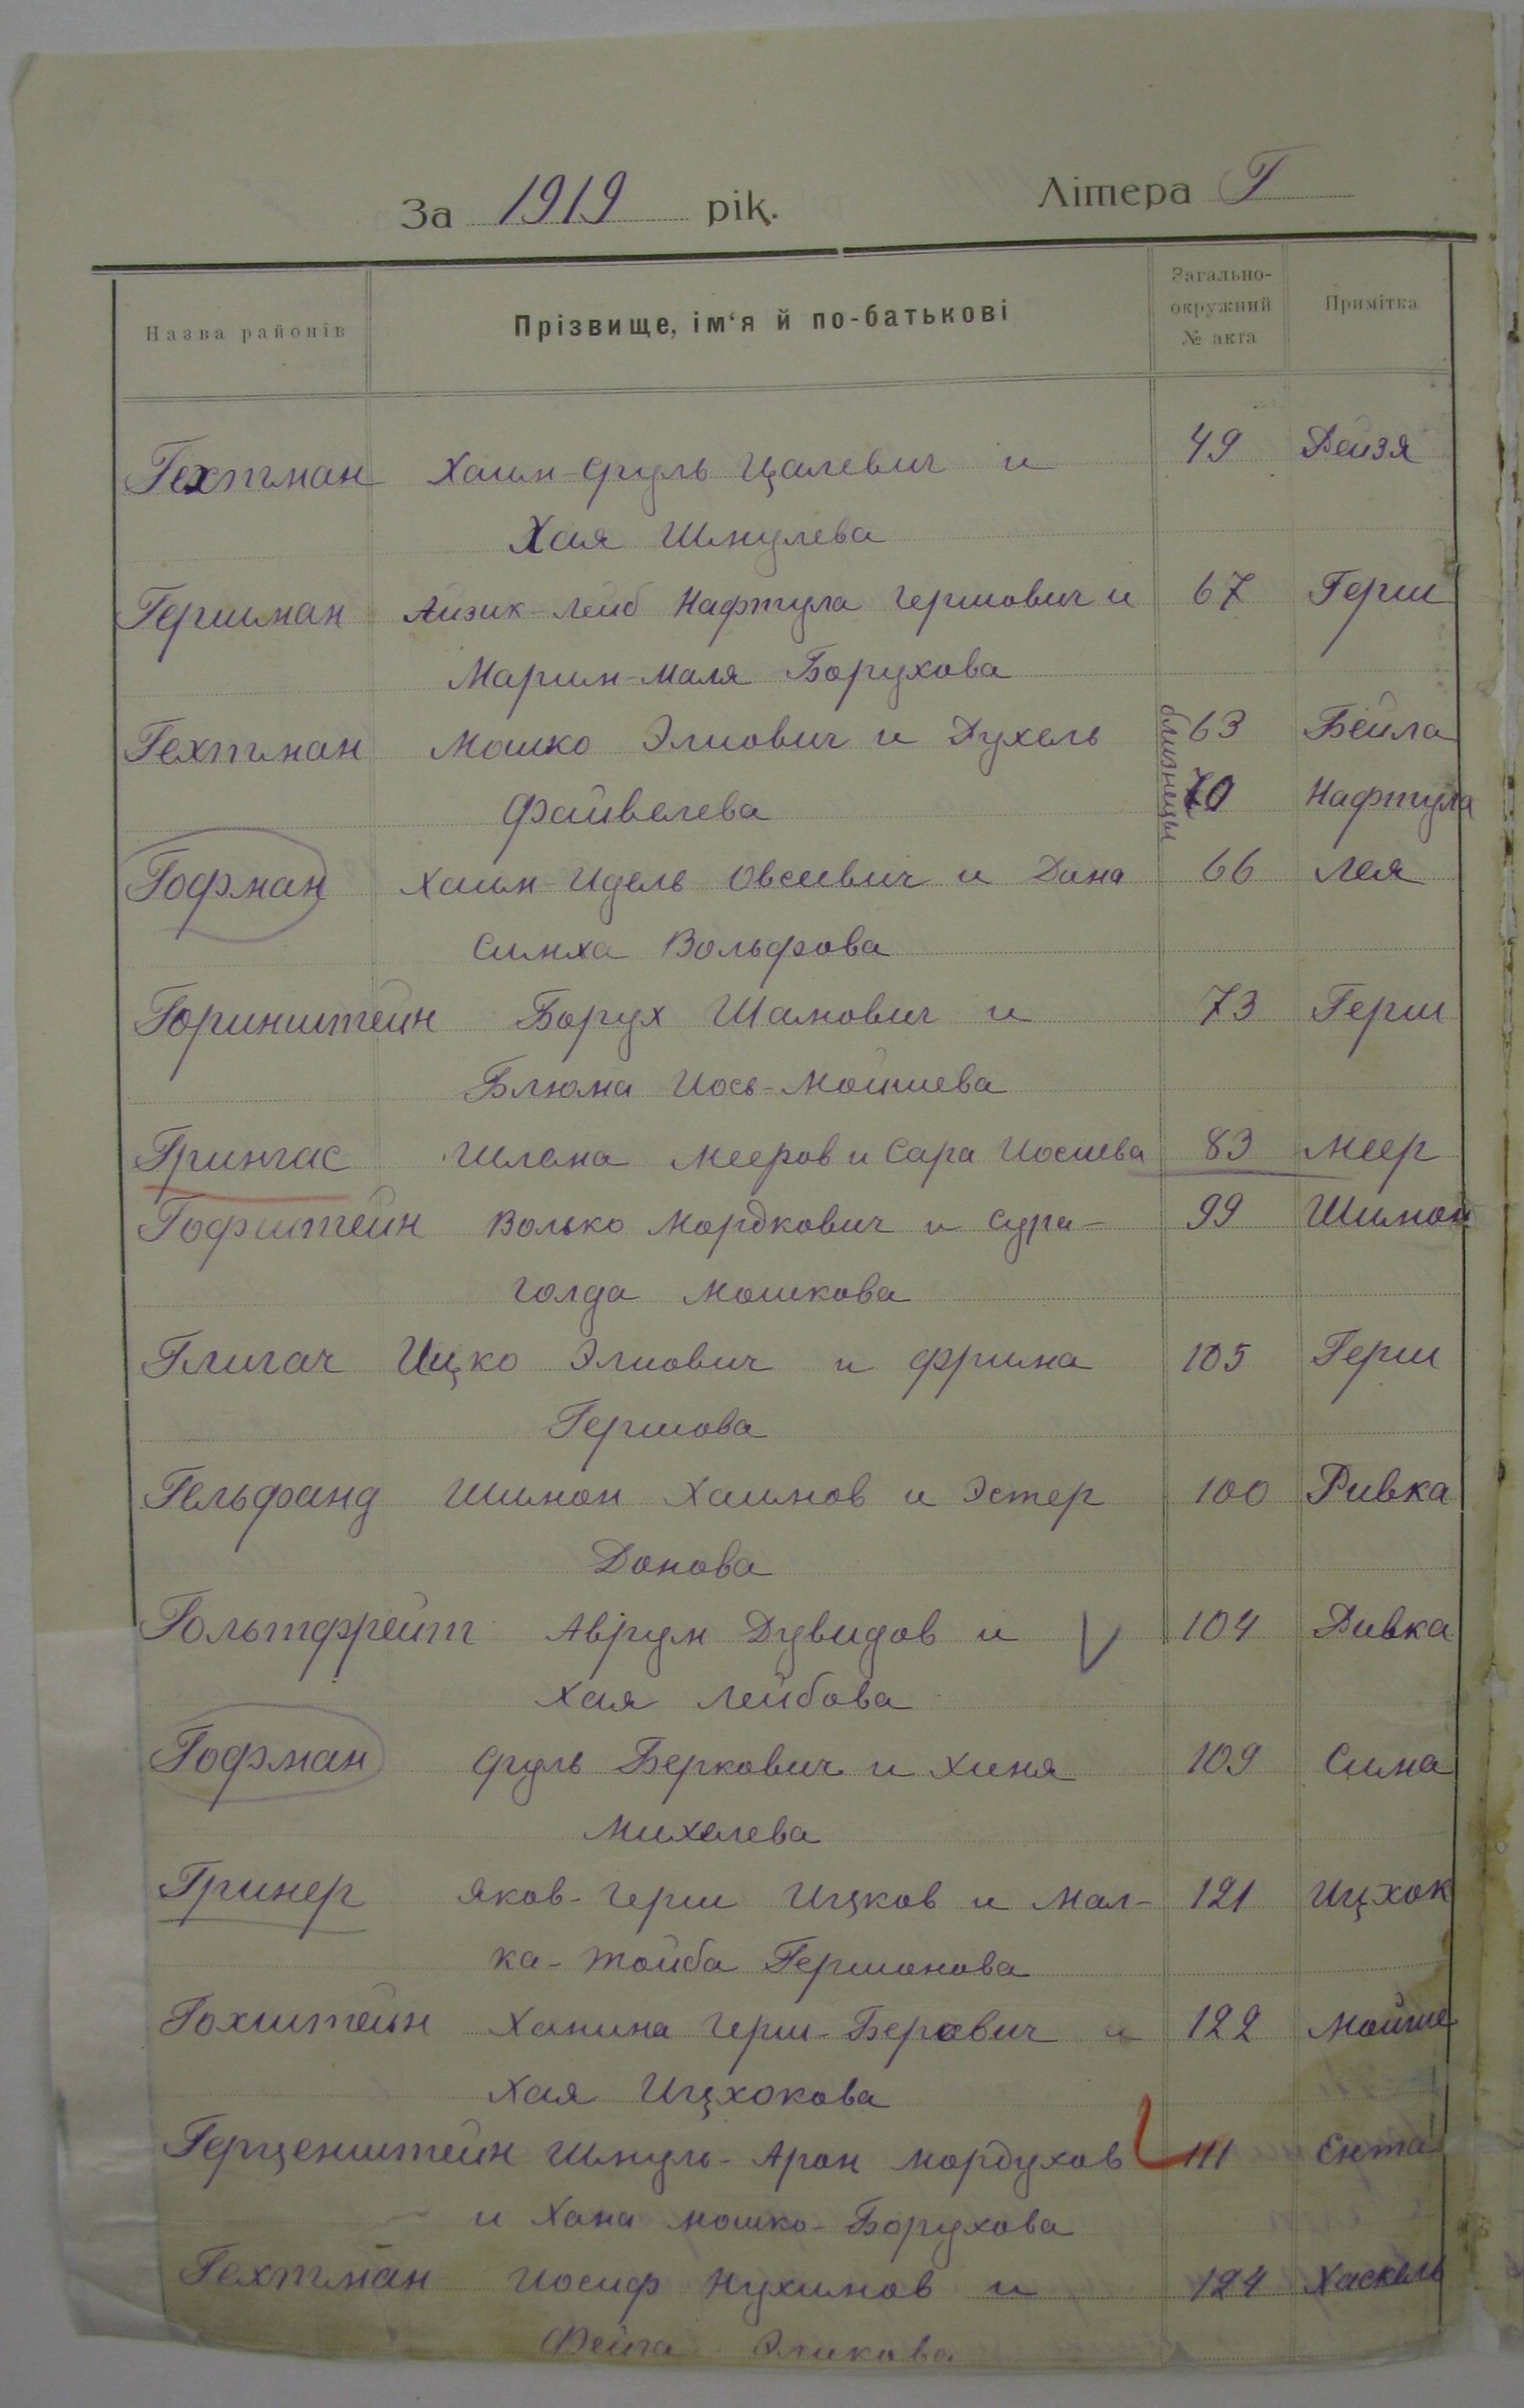 За 1919 рік. Літера Г
Назва районів Прізвище, ім‘я й по-батькові Загально-окружний № акта Примітка
Гехтман Хаим-Сруль Цалевич и 49 Фейзя
Хая Шмулева
Гершман Айзик-Лейб Нафтула Гершович и 67 Герш
Марим-Маля Борухова
Гехтман Мошко Элиович и Рухель 63 Бейла
близнецы
Файвелева 70 Нафтула
Гофман Хаим-Идель Овсеевич и Дана 66 Лея
Симха Вольфова
Горинштейн Борух Шамович и 73 Герш
Блюма Иось-Мойшева
Грингас Шлема Мееров и Сара Иосиева 83 Меер
Гофштейн Волько Мордкович и Сура- 99 Шимон
Голда Мошкова
Глигач Ицко Элиович и Фрима 105 Герш
Гершова
Гельфанд Шимон Хаимов и Эстер 100 Ривка
Донова
Гольтфрейт Аврум Дувидов и 104 Ривка
Хая Лейбова
Гофман Сруль Беркович и Хиня 109 Сима
Михелева
Гринер Яков-Герш Ицков и Мал- 121 Ицхок
ка-Тойба Гершонова
Гохштейн Ханина Герш-Берович и 122 Мойше
Хая Ицхокова
Герценштейн Шмуль-Арон Мордухов 111 Ента
и Хана Мошко-Борухова
Гехтман Иосиф Нухимов и 124 Хаскель
Фейга Эликова